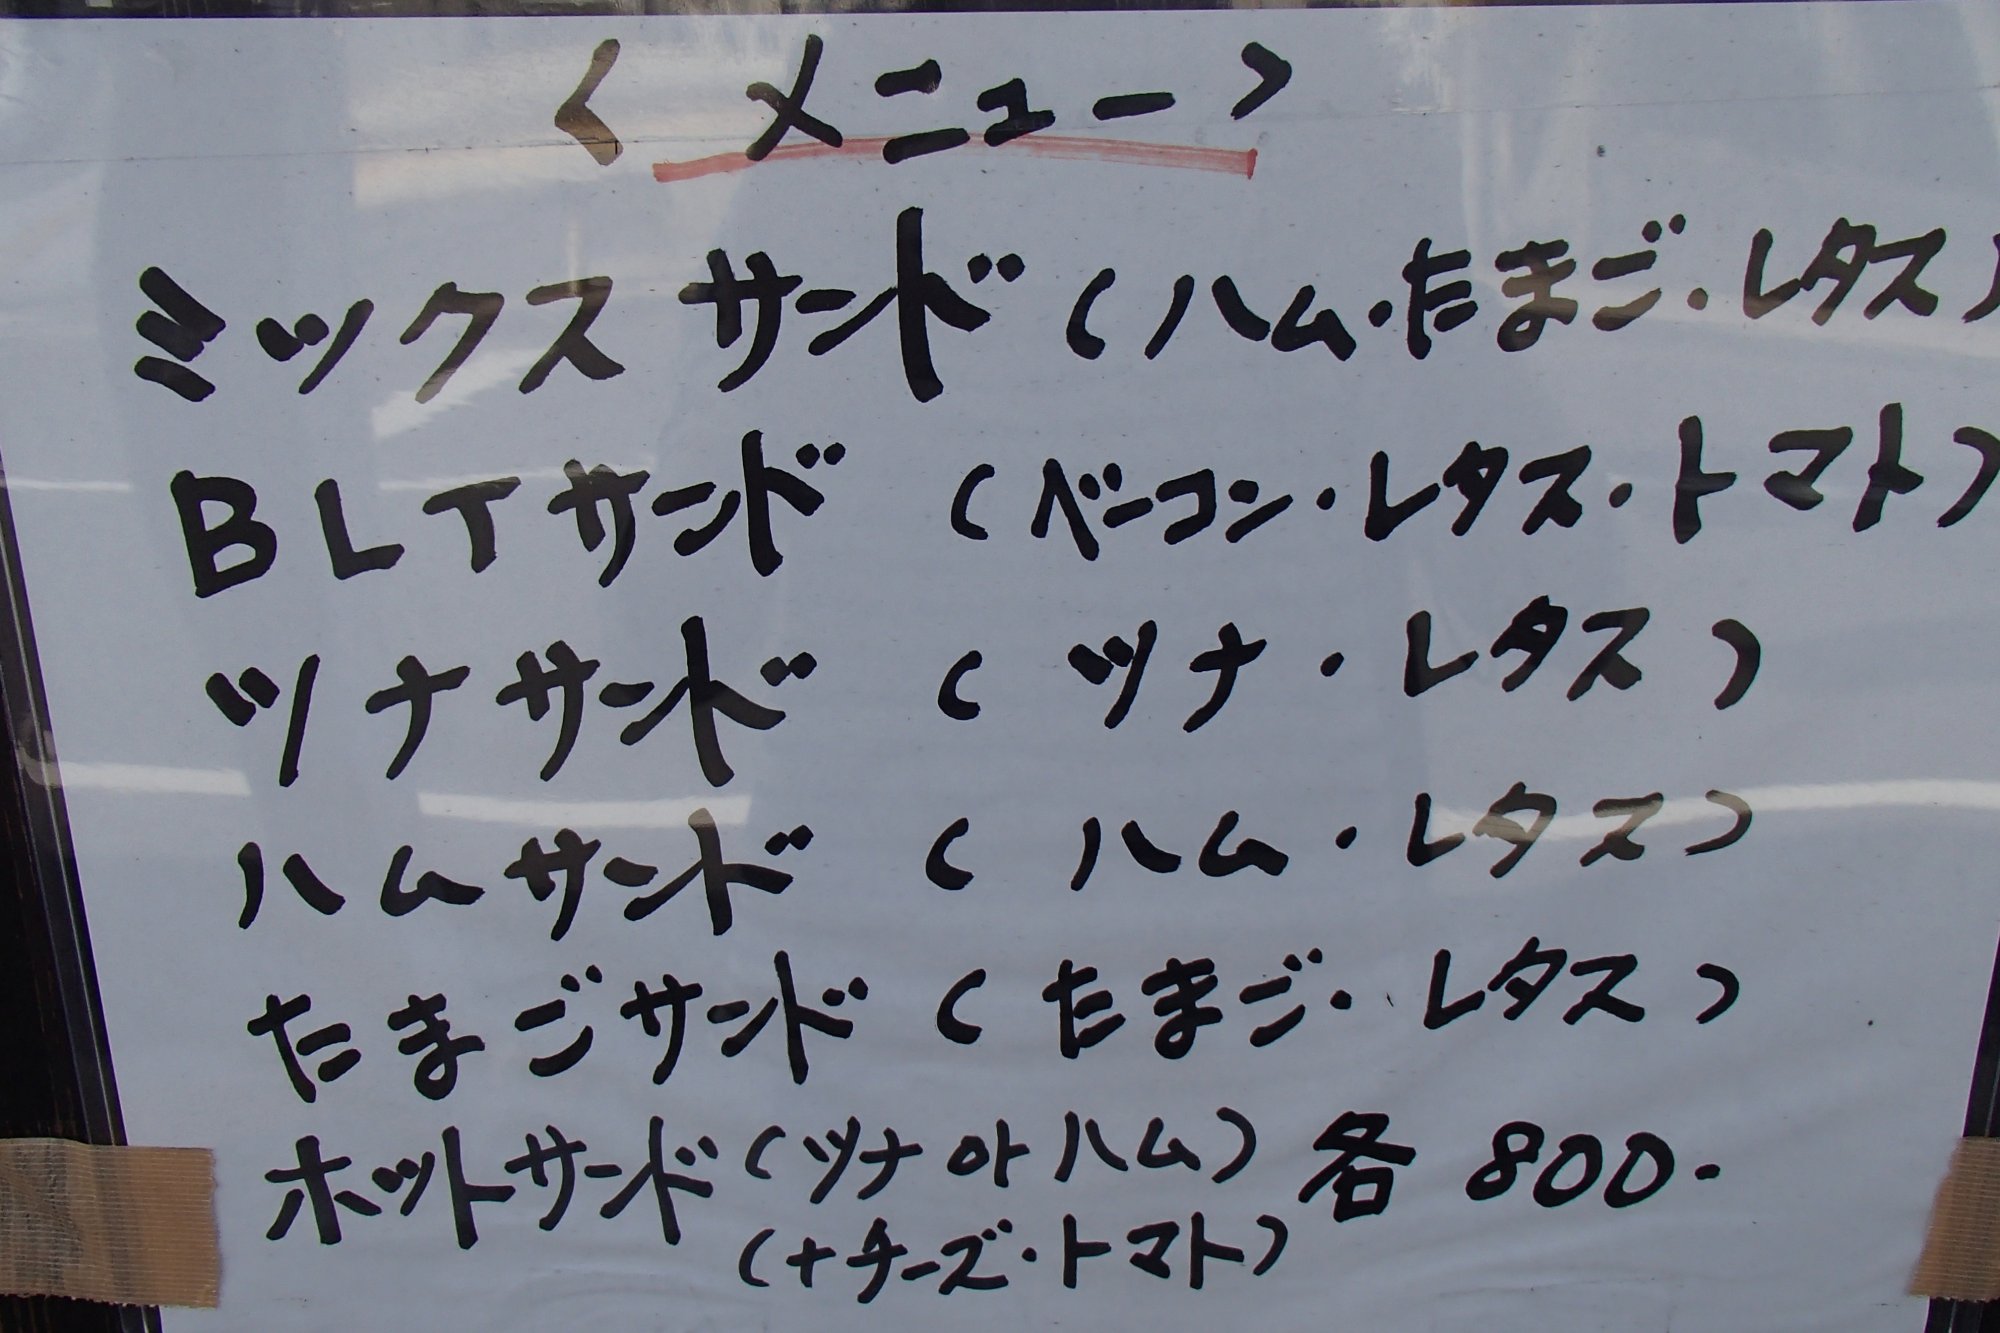 < メニュー >
ミックスサンド (ハム・たまご・レタス)
BLTサンド (ベーコン・レタス・トマト)
ツナサンド (ツナ・レタス)
ハムサンド (ハム・レタス)
たまごサンド (たまご・レタス)
ホットサンド (ツナ or ハム) 各 800.-
(+チーズ・トマト)